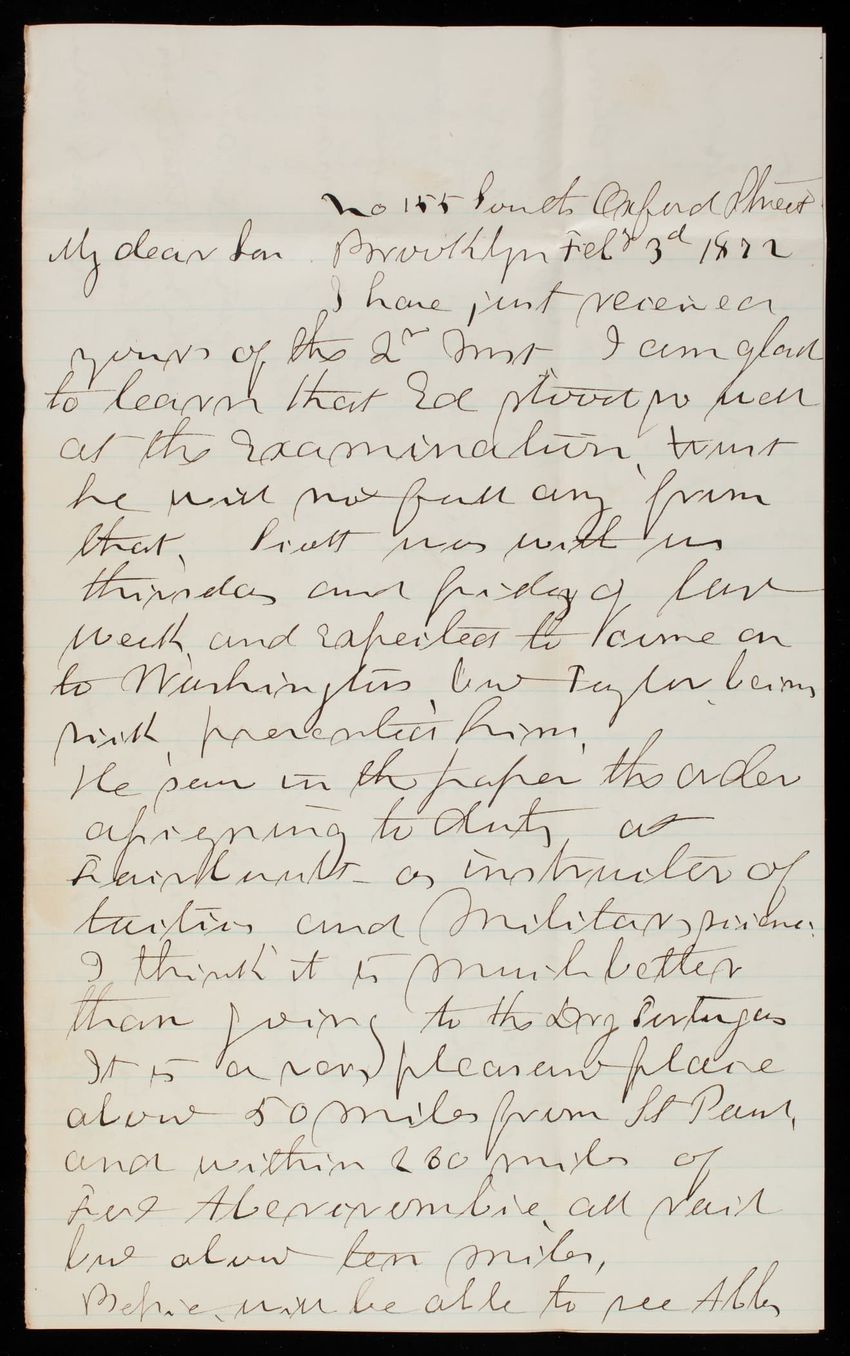 No 155 South Oxford Street
My dear Son Brooklyn Feby 3d 1872
I have just received
yours of the 2nd Inst I am glad
to learn that Ed stood so well
at the Examination, trust
he will not fall any from
that. Scott was with us
thursday and friday of last
week, and expected to come on
to Washington, but Taylor being
sick, prevented him.
He saw in the paper the order
assigning to duty at
Faribault as instructor of
tactics and Military science.
I think it is much better
than going to the Dry Tortugas
It is a very pleasant place
about 50 miles from St Paul,
and within 200 miles of
Fort Abercrombie, all rail
but about ten miles,
Bessie will be able to see Abby